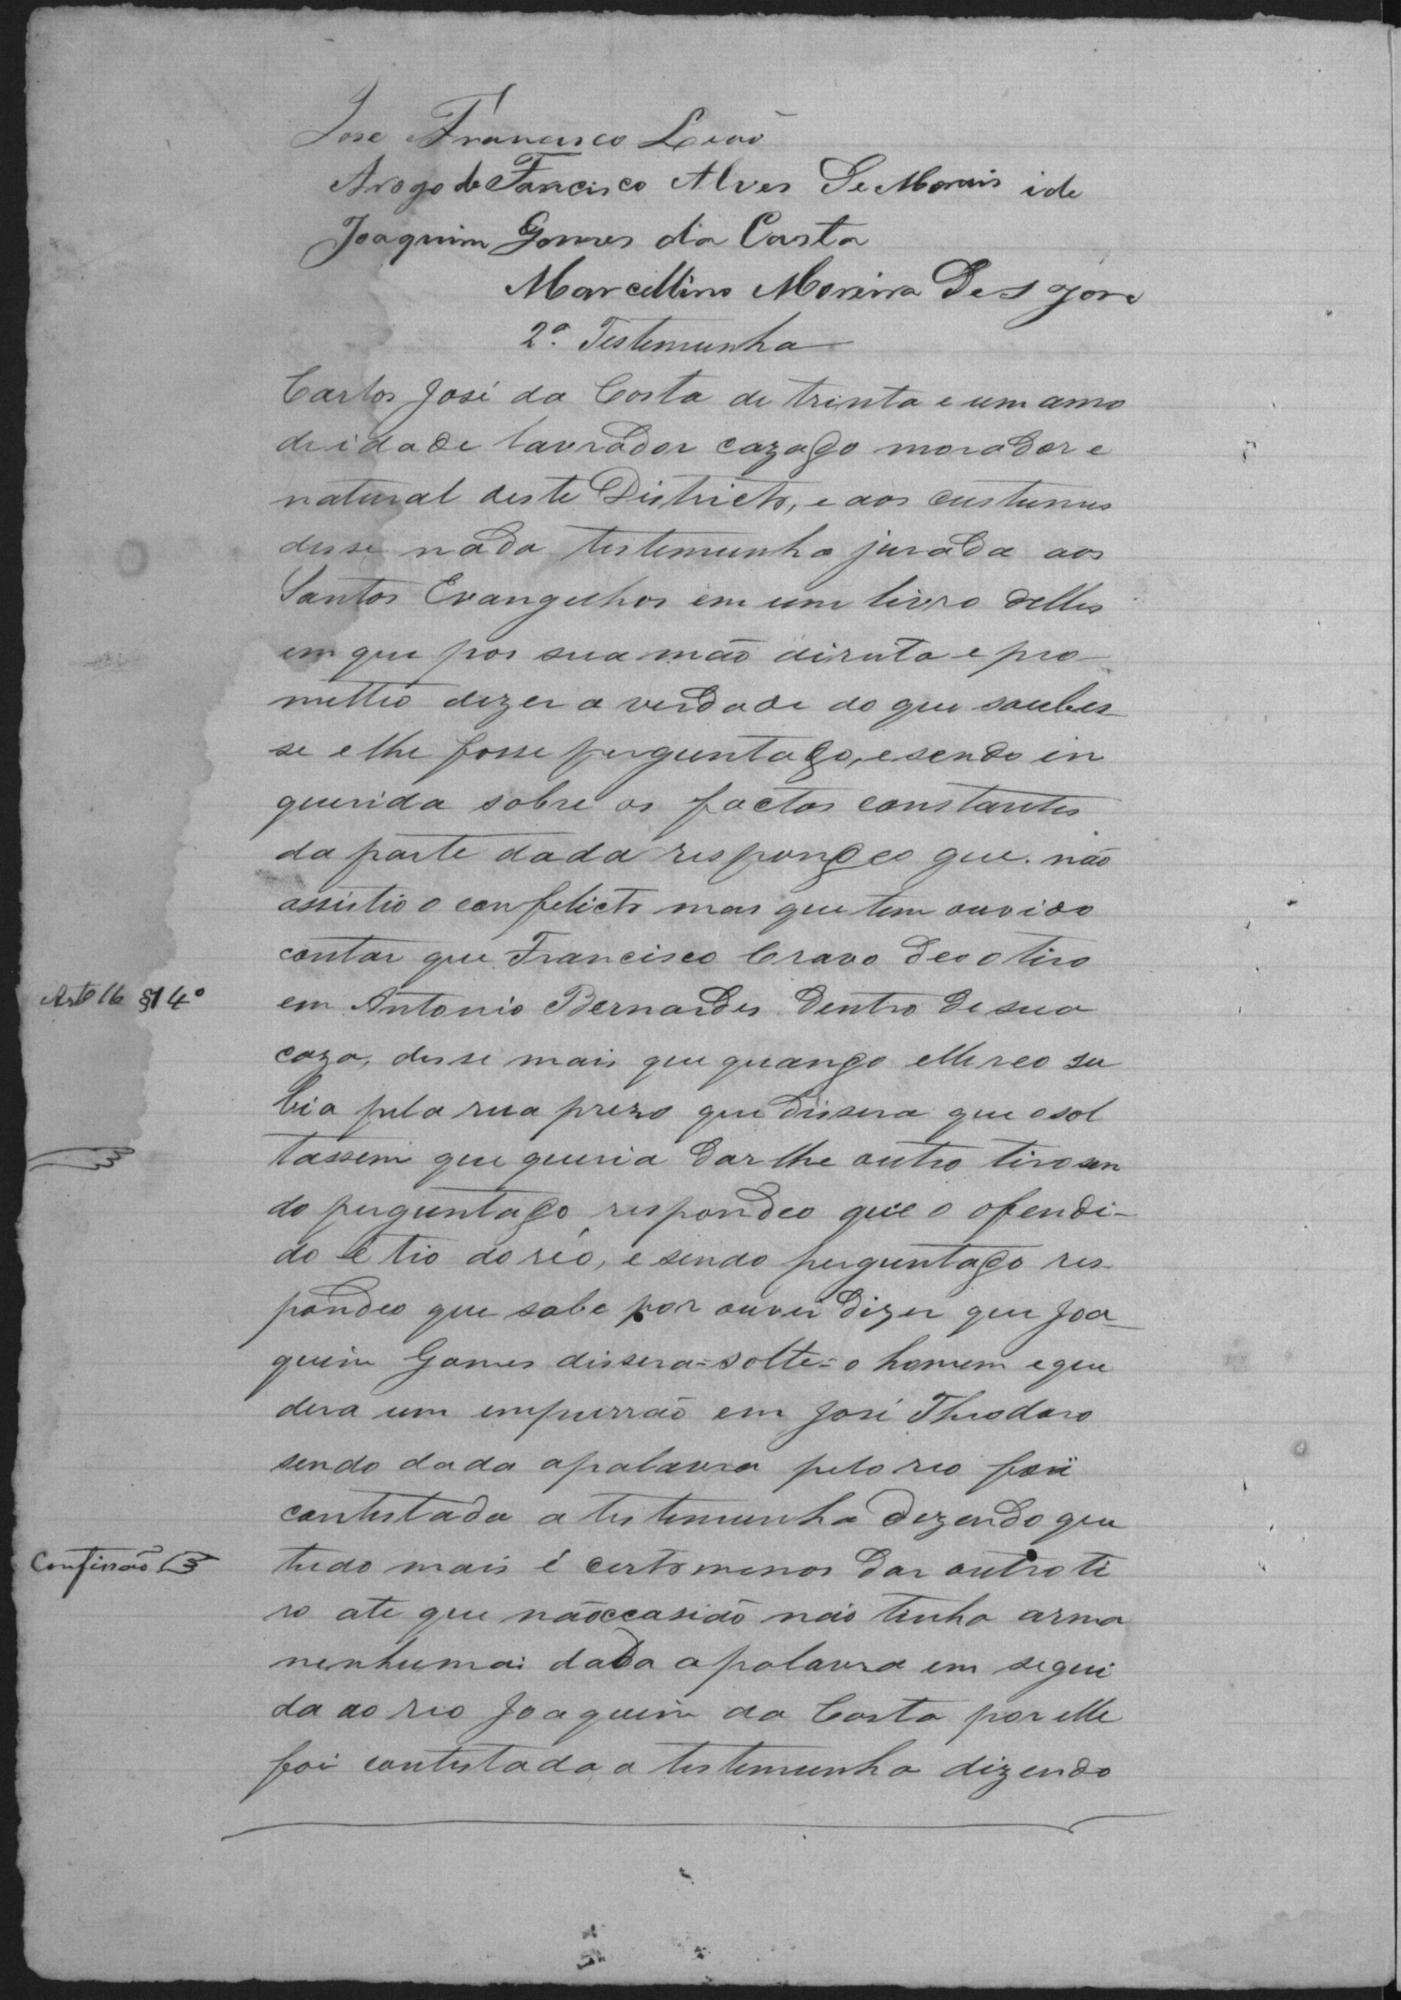 Jose Francisco Leão
Arogo de Fancisco Alves De Morais i de
Joaquim Gomes da Costa
Marcellino Moreira De S Jose
2ª. Testemunha
Carlos José da Costa de trinta e um anno
de idade lavrador cazado morador e
natural deste Districto, e aos custumes
disse nada testemunha jurada aos
Santos Evangelhos em um livro delles
em que pos sua mão direita e pro
metteo dizer a verdade do que soubes
se e lhe fosse perguntado, e sendo in
querida sobre os factos constantes
da parte dada respondeo que não
assistio o confelicto mas que tem ouvido
contar que Francisco Cravo deo o tiro
Art 16 §14º
em Antonio Bernardes dentro de sua
caza, disse mais que quando elle reo su
bia pela rua prezo que dissera que o sol
tassem que queria dar lhe outro tiro sen
do perguntado respondeo que o ofendi-
do é tio do réo, e sendo perguntado res-
pondeo que sabe por ouver dizer que Joa-
quim Gomes dissera=solte=o homem e que
dera um empurrão em José Theodoro
sendo dada a palavra pelo reo foi
contestada a testemunha dezendo que
Confissão
tudo mais é certo menos dar outro ti
ro ate que não occasião não tinha arma
nenhuma: dada a palavra em segui
da ao reo Joaquim da Costa por elle
foi contestada a testemunha dizendo